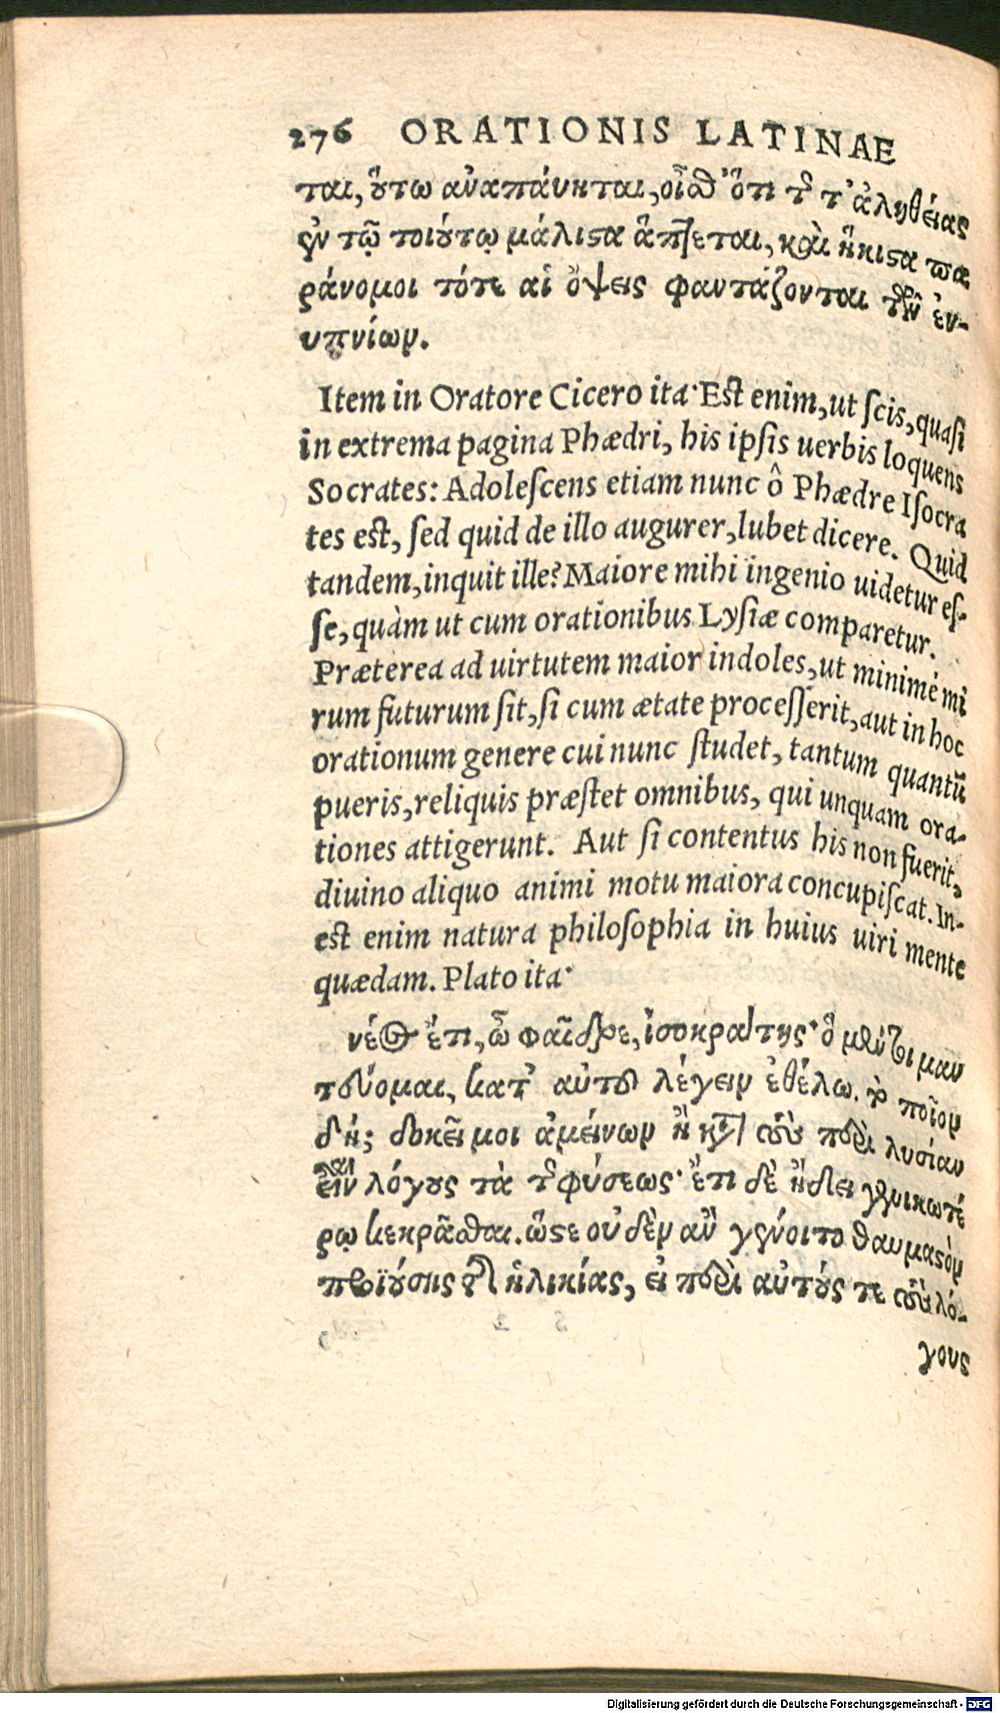 276 ORATIONIS LATINAE
ται, οὕτω ἀναπάυηται, οἶσθ' ὅτι τῆς τ' ἀληθείας
ἐν τῷ τοιούτῳ μάλιστα ἅπτεται, καὶ ἥκιστα πα
ράνομοι τότε αἱ ὄψεις φαντάζονται τῶν ἐν-
υπνίων.
Item in Oratore Cicero ita· Est enim, ut ſcis, quaſi
in extrema pagina Phædri, his ipſis uerbis loquens
Socrates: Adoleſcens etiam nunc ô Phædre Iſocra
tes est, ſed quid de illo augurer, lubet dicere. Quid
tandem, inquit ille? Maiore mihi ingenio uidetur eſ-
ſe, quàm ut cum orationibus Lyſiæ comparetur.
Præterea ad uirtutem maior indoles, ut minimé mi
rum futurum ſit, ſi cum ætate proceſſerit, aut in hoc
orationum genere cui nunc ſtudet, tantum quantū
pueris, reliquis præſtet omnibus, qui unquam ora-
tiones attigerunt. Aut ſi contentus his non fuerit,
diuino aliquo animi motu maiora concupiſcat. In-
est enim natura philoſophia in huius uiri mente
quædam. Plato ita·
νέος ἔτι, ὦ φαῖδρε, ἰσοκράτης· ὃ μέντοι μαν
τεύομαι, κατ' αὐτοῦ λέγειν ἐθέλω. τὸ ποῖον
δή; δοκεῖ μοι ἀμείνων ἢ κατὰ τοὺς περὶ λυσίαν
εἶναι λόγους τὰ τῆς φύσεως· ἔτι δὲ ἤθει γεννικωτέ
ρῳ κεκρᾶσθαι. ὥστε οὐδὲν ἂν γένοιτο θαυμαστὸν
προϊούσης τῆς ἡλικίας, εἰ περὶ αὐτούς τε τοὺς λό-
γους
Digitalisierung gefördert durch die Deutsche Forschungsgemeinschaft - DFG